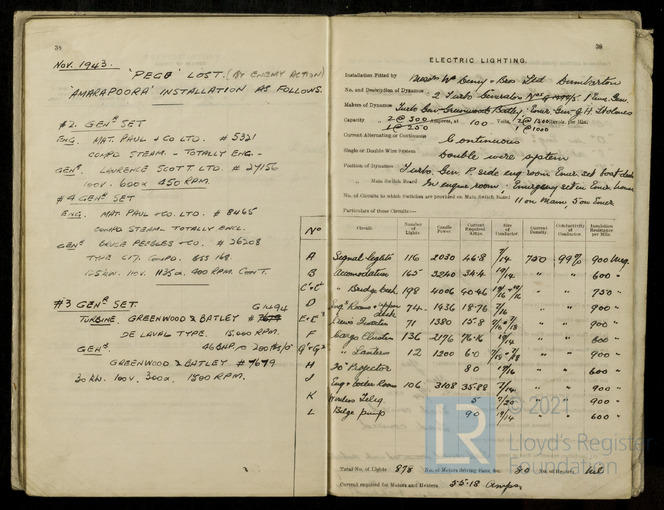 38
NOV. 1943.
'PEGU' LOST. (BY ENEMY ACTION)
'AMARAPOORA' INSTALLATION AS FOLLOWS.
#2 GENR SET
ENG. MAT. PAUL & CO LTD. # 5321
COMPD STEAM. - TOTALLY ENC. -
GENR LAURENCE SCOTT LTD. # 27156
100V. 600A 450 RPM.
#4 GENR SET
ENG. MAT. PAUL & CO. LTD. # 8465
COMPD STEAM - TOTALLY ENCL.
GENR BRUCE PEEBLES & CO. # 26208
TYPE COMPD.
125 KW. 110V. 1135A. 400 RPM. CONT.
#3 GENR SET.
TURBINE. GREENWOOD & BATLEY #
DE LAVAL TYPE. 15000 RPM.
46 BHP. 200 lbs/□"
GENR.
GREENWOOD & BATLEY # 7679
30 KW. 100V. 300A. 1500 RPM.
39
ELECTRIC LIGHTING.
Installation Fitted by Messrs Wm Denny & Bros Ltd Dumbarton
No. and Description of Dynamos 2 Turbo Generators 1 Emer. Gen.
Makers of Dynamos Turbo Gen Greenwood & Batley. Emer. Gen. J. H. Holmes
Capacity 2 @ 300 1 @ 250 Amperes, at 100 Volts, 2 @ 1500 1 @ 1000 Revols. per Min.
Current Alternating or Continuous Continuous
Single or Double Wire System Double wire system
Position of Dynamos Turbo. Gen. P. side eng room Emer. set boat deck
" Main Switch Board In engine room. Emergency set in Emer. house
No. of Circuits to which Switches are provided on Main Switch Board 11 on Main, 5 on Emer
Particulars of these Circuits:—
No Circuit. Number of Lights. Candle Power. Current Required Amps. Size of Conductor. Current Density. Conductivity of Conductor. Insulation Resistance per Mile.
A Signal lights 116 2030 46.8 7/14 " 750 99% 900 Meg.
B Accomodation 165 3240 34.4 19/14 " " 600 "
C+C1 " Bridge Deck 198 4006 40.46 " " 750 "
D Engrs Rooms & Upper deck 74 1436 18.76 7/16 " " 900 "
E+E1 Crews Quarters 71 1380 15.8 " " 900 "
F Cargo Clusters 136 2176 76.16 19/14 " " 600 "
G+G2 " Lanterns 12 1200 60 " " 900 "
H 20" Projector 80 19/16 " " 600 "
J Eng & boiler Room 106 3108 35.88 7/14 " " 900 "
K Wireless Teleg. 5 7/20 " " 900 "
L Bilge pump 90 19/14 " " 600 "
Total No. of Lights 878 No. of Motors driving Fans, &c. No. of Heaters Nil
Current required for Motors and Heaters 55.18 Amps.
LR
© 2021
Lloyd's Register
Foundation